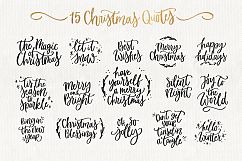 15 Christmas Quotes
The Magic of Christmas
let it Snow
Best Wishes
Merry Christmas
happy holidays
'tis the season to sparkle
Merry and Bright
have yourself a merry Christmas
Silent Night
Joy to the World
Bring in the new year
Christmas Blessings
oh so jolly
hello Winter